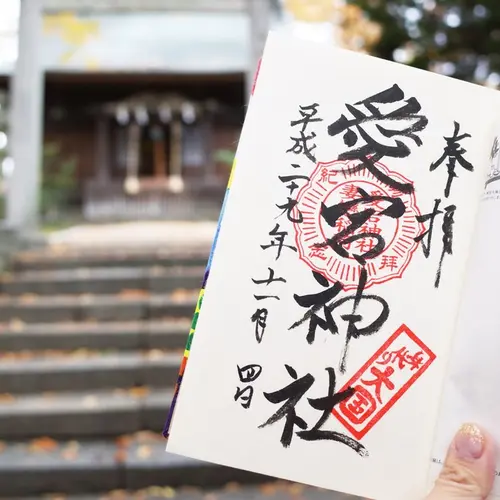 奉拝
愛宕神社
平成二十九年十一月四日